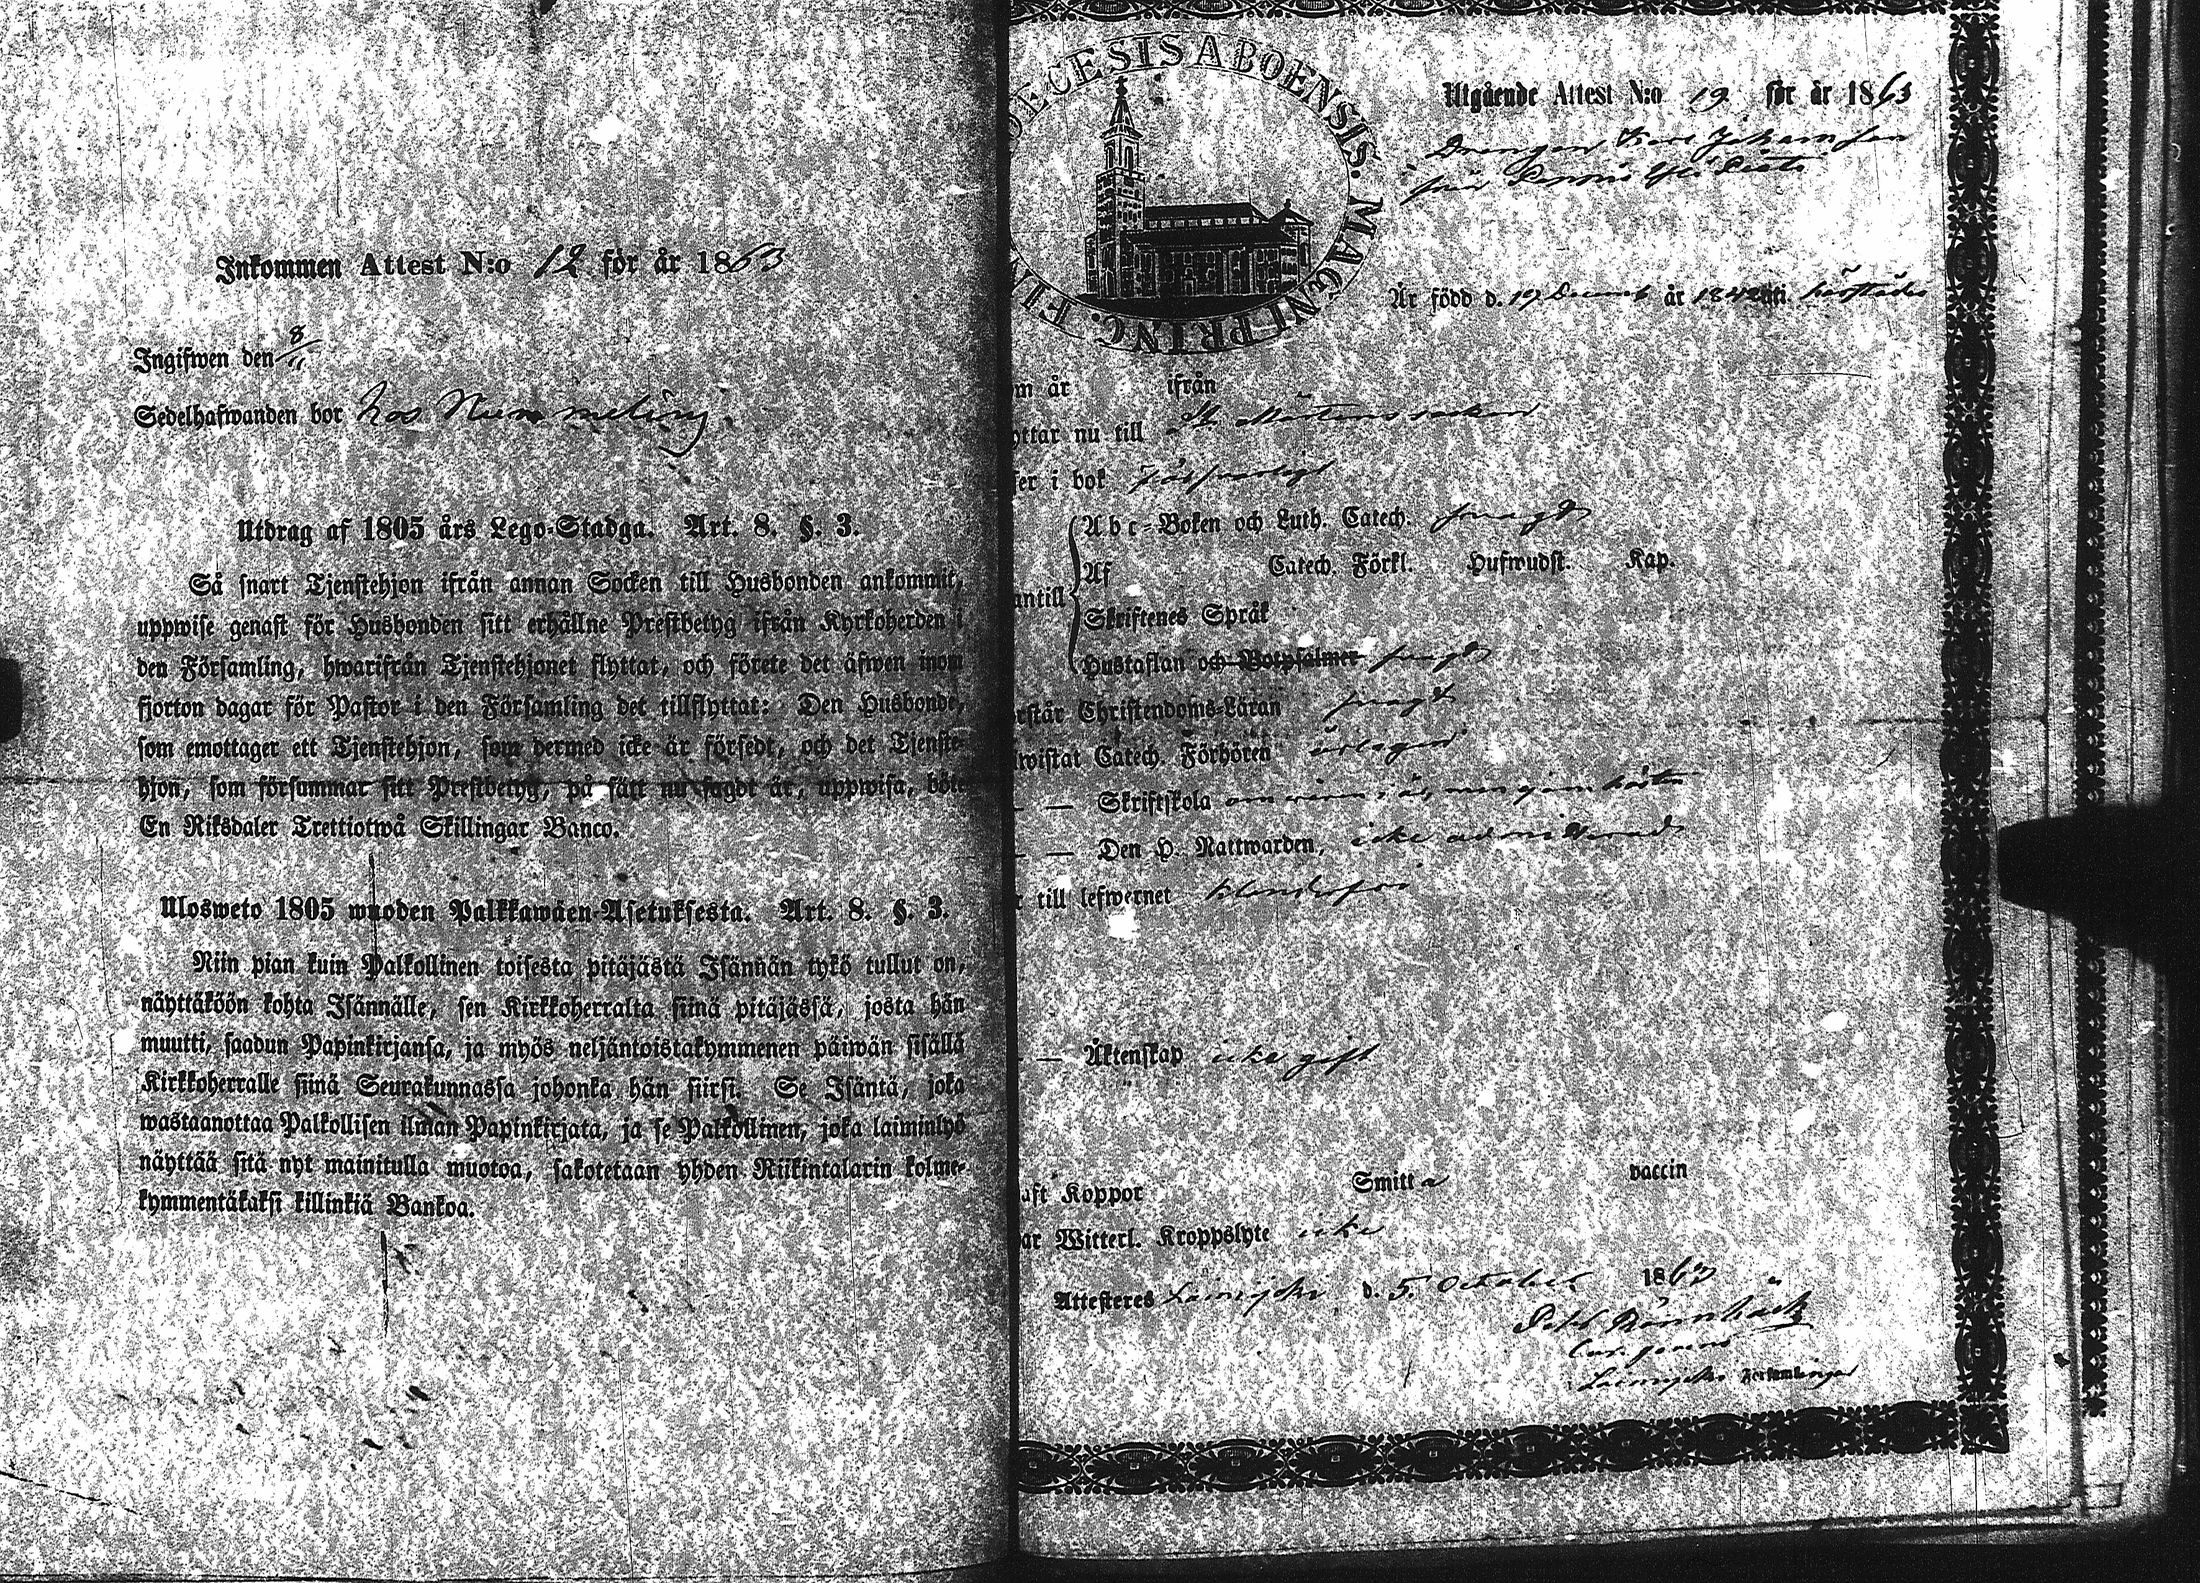 Inkommen Attest N:o 12 för år 1863
Ingifwen den 8/11
Sedelhafwanden bor hos
Utdrag af 1805 års Lego-Stadga. Art. 8. §. 3.
Så snart Tjenstehjon ifrån annan Socken till Husbonden ankommit,
uppwise genast för Husbonden sitt erhållne Prestbetyg ifrån Kyrkoherden i
den Församling, hwarifrån Tjenstehjonet flyttat, och förete det äfwen inom
fjorton dagar för Pastor i den Församling det tillflyttat: Den Husbonde,
som emottager ett Tjenstehjon, som dermed icke är försedt, och det Tjenste-
hjon, som försummar sitt Prestbetyg, på sätt nu sagdt är, uppwisa, böte
En Riksdaler Trettiotwå Skillingar Banco.
Ulosweto 1805 wuoden Palkkawäen-Asetuksesta. Art. 8. §. 3.
Niin pian kuin Palkollinen toisesta pitäjästä Isännän tykö tullut on,
näyttäköön kohta Isännälle, sen Kirkkoherralta siinä pitäjässä, josta hän
muutti, saadun Papinkirjansa, ja myös neljäntoistakymmenen päiwän sisällä
Kirkkoherralle siinä Seurakunnassa johonka hän siirsi. Se Isäntä, joka
wastaanottaa Palkollisen ilman Papinkirjata, ja se Palkollinen, joka laiminlyö
näyttää sitä nyt mainitulla muotoa, sakotetaan yhden Riikintalarin kolme-
kymmentäkaksi killinkiä Bankoa.
ŒCESIS ABOENSIS. MAGNI PRINC. FIN
Utgående Attest N:o 19. för år 1863
Drengen Karl Johansson
från
Är född d. 19 Decemb år 1842 uti
m år ifrån
yttar nu till St Mårtens socken
ser i bok försvarligt
Abc-Boken och Luth. Catech. svagt
Af Catech. Förkl. Hufwudst. Kap.
antill
Skriftenes Språk
Hustaflan och Botpsalmer svagt
rstår Christendoms-Läran svagt
wistat Catech. Förhören
— — Skriftskola
— — Den H. Nattwarden, icke admitterad
r till lefwernet klanderfri
— — Äktenskap icke gift
aft Koppor Smitta vaccin
ar Witterl. Kroppslyte icke
Attesteres Loimijoki d. 5 October 1863
Rönnbäck
Loimijoki Församlingar